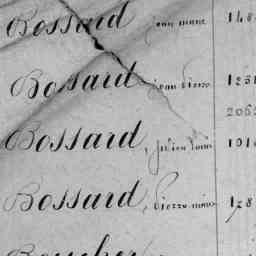 Bossard jean marie 148
Bossard, jean Pierre 1231
2065
Bossard, Julien Louis 1010
Bossard, Pierre marie 128
Boucher